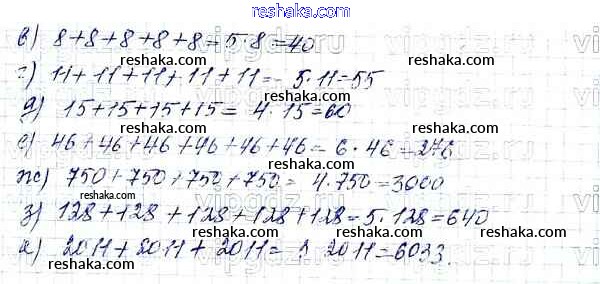 reshaka.com
в) 8+8+8+8+8=5·8=40
reshaka.com reshaka.com reshaka.com
г) 11+11+11+11+11=5·11=55
д) 15+15+15+15=4·15=60
reshaka.com reshaka.com reshaka.com
е) 46+46+46+46+46+46=6·46=276
reshaka.com reshaka.com reshaka.com
ж) 750+750+750+750=4·750=3000
reshaka.com reshaka.com reshaka.com
з) 128+128+128+128+128=5·128=640
reshaka.com reshaka.com reshaka.com
и) 2011+2011+2011=3·2011=6033.
reshaka.com reshaka.com reshaka.com